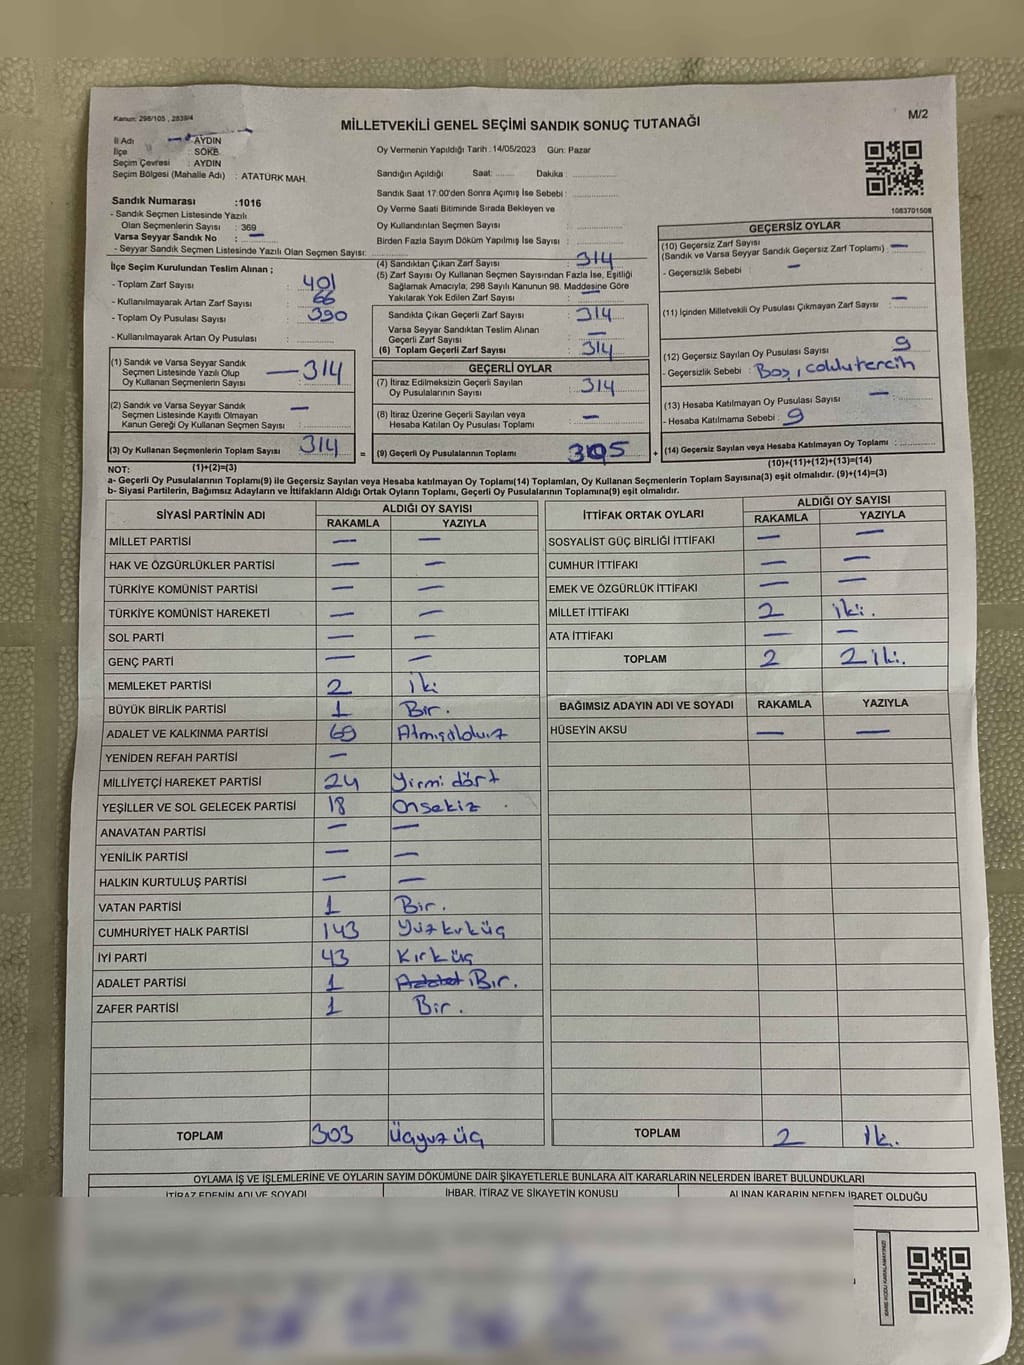 Kanun: 298/105 , 2839/4
M/2
MİLLETVEKİLİ GENEL SEÇİMİ SANDIK SONUÇ TUTANAĞI
İl Adı : AYDIN
İlçe : SÖKE
Seçim Çevresi : AYDIN
Seçim Bölgesi (Mahalle Adı) : ATATÜRK MAH.
Sandık Numarası :1016
- Sandık Seçmen Listesinde Yazılı
Olan Seçmenlerin Sayısı : 369
Varsa Seyyar Sandık No : —
- Seyyar Sandık Seçmen Listesinde Yazılı Olan Seçmen Sayısı:
Oy Vermenin Yapıldığı Tarih : 14/05/2023 Gün: Pazar
Sandığın Açıldığı Saat: ........ Dakika ............
Sandık Saat 17.00'den Sonra Açımış İse Sebebi : ............
Oy Verme Saati Bitiminde Sırada Bekleyen ve
Oy Kullandırılan Seçmen Sayısı : ............
Birden Fazla Sayım Döküm Yapılmış İse Sayısı : ............
1083701508
İlçe Seçim Kurulundan Teslim Alınan ;
- Toplam Zarf Sayısı : 401
- Kullanılmayarak Artan Zarf Sayısı : 66
- Toplam Oy Pusulası Sayısı : 390
- Kullanılmayarak Artan Oy Pusulası :
(1) Sandık ve Varsa Seyyar Sandık
Seçmen Listesinde Yazılı Olup
Oy Kullanan Seçmenlerin Sayısı : — 314
(2) Sandık ve Varsa Seyyar Sandık
Seçmen Listesinde Kayıtlı Olmayan
Kanun Gereği Oy Kullanan Seçmen Sayısı : —
(3) Oy Kullanan Seçmenlerin Toplam Sayısı : 314
(1)+(2)=(3)
(4) Sandıktan Çıkan Zarf Sayısı : 314
(5) Zarf Sayısı Oy Kullanan Seçmen Sayısından Fazla İse, Eşitliği
Sağlamak Amacıyla, 298 Sayılı Kanunun 98. Maddesine Göre
Yakılarak Yok Edilen Zarf Sayısı : —
Sandıkta Çıkan Geçerli Zarf Sayısı : 314
Varsa Seyyar Sandıktan Teslim Alınan
Geçerli Zarf Sayısı : —
(6) Toplam Geçerli Zarf Sayısı : 314
GEÇERLİ OYLAR
(7) İtiraz Edilmeksizin Geçerli Sayılan
Oy Pusulalarının Sayısı : 314
(8) İtiraz Üzerine Geçerli Sayılan veya
Hesaba Katılan Oy Pusulası Toplamı : —
= (9) Geçerli Oy Pusulalarının Toplamı 305 +
GEÇERSİZ OYLAR
(10) Geçersiz Zarf Sayısı
(Sandık ve Varsa Seyyar Sandık Geçersiz Zarf Toplamı) : —
- Geçersizlik Sebebi : —
(11) İçinden Milletvekili Oy Pusulası Çıkmayan Zarf Sayısı : —
(12) Geçersiz Sayılan Oy Pusulası Sayısı : 9
- Geçersizlik Sebebi : Boş,
(13) Hesaba Katılmayan Oy Pusulası Sayısı : —
- Hesaba Katılmama Sebebi : 9
(14) Geçersiz Sayılan veya Hesaba Katılmayan Oy Toplamı : ............
(10)+(11)+(12)+(13)=(14)
NOT:
a- Geçerli Oy Pusulalarının Toplamı(9) ile Geçersiz Sayılan veya Hesaba katılmayan Oy Toplamı(14) Toplamları, Oy Kullanan Seçmenlerin Toplam Sayısına(3) eşit olmalıdır. (9)+(14)=(3)
b- Siyasi Partilerin, Bağımsız Adayların ve İttifakların Aldığı Ortak Oyların Toplamı, Geçerli Oy Pusulalarının Toplamına(9) eşit olmalıdır.
SİYASİ PARTİNİN ADI ALDIĞI OY SAYISI
RAKAMLA YAZIYLA
MİLLET PARTİSİ — —
HAK VE ÖZGÜRLÜKLER PARTİSİ — —
TÜRKİYE KOMÜNİST PARTİSİ — —
TÜRKİYE KOMÜNİST HAREKETİ — —
SOL PARTİ — —
GENÇ PARTİ — —
MEMLEKET PARTİSİ 2 iki
BÜYÜK BİRLİK PARTİSİ 1 Bir.
ADALET VE KALKINMA PARTİSİ 69 Atmışdokuz
YENİDEN REFAH PARTİSİ —
MİLLİYETÇİ HAREKET PARTİSİ 24 Yirmi dört
YEŞİLLER VE SOL GELECEK PARTİSİ 18 Onsekiz
ANAVATAN PARTİSİ — —
YENİLİK PARTİSİ — —
HALKIN KURTULUŞ PARTİSİ — —
VATAN PARTİSİ 1 Bir.
CUMHURİYET HALK PARTİSİ 143 Yüzkırküç
İYİ PARTİ 43 Kırküç
ADALET PARTİSİ 1 Bir.
ZAFER PARTİSİ 1 Bir.
TOPLAM 303 Üçyuzüç
İTTİFAK ORTAK OYLARI ALDIĞI OY SAYISI
RAKAMLA YAZIYLA
SOSYALİST GÜÇ BİRLİĞİ İTTİFAKI — —
CUMHUR İTTİFAKI — —
EMEK VE ÖZGÜRLÜK İTTİFAKI — —
MİLLET İTTİFAKI 2 iki.
ATA İTTİFAKI — —
TOPLAM 2 2 iki.
BAĞIMSIZ ADAYIN ADI VE SOYADI RAKAMLA YAZIYLA
HÜSEYİN AKSU — —
TOPLAM 2 İki.
OYLAMA İŞ VE İŞLEMLERİNE VE OYLARIN SAYIM DÖKÜMÜNE DAİR ŞİKAYETLERLE BUNLARA AİT KARARLARIN NELERDEN İBARET BULUNDUKLARI
İTİRAZ EDENİN ADI VE SOYADI İHBAR, İTİRAZ VE ŞİKAYETİN KONUSU ALINAN KARARIN NEDEN İBARET OLDUĞU